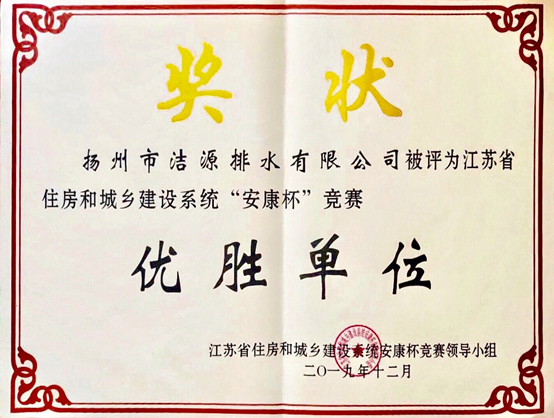 奖状
扬州市洁源排水有限公司被评为江苏省
住房和城乡建设系统“安康杯”竞赛
优胜单位
江苏省住房和城乡建设系统安康杯竞赛领导小组
二〇一九年十二月